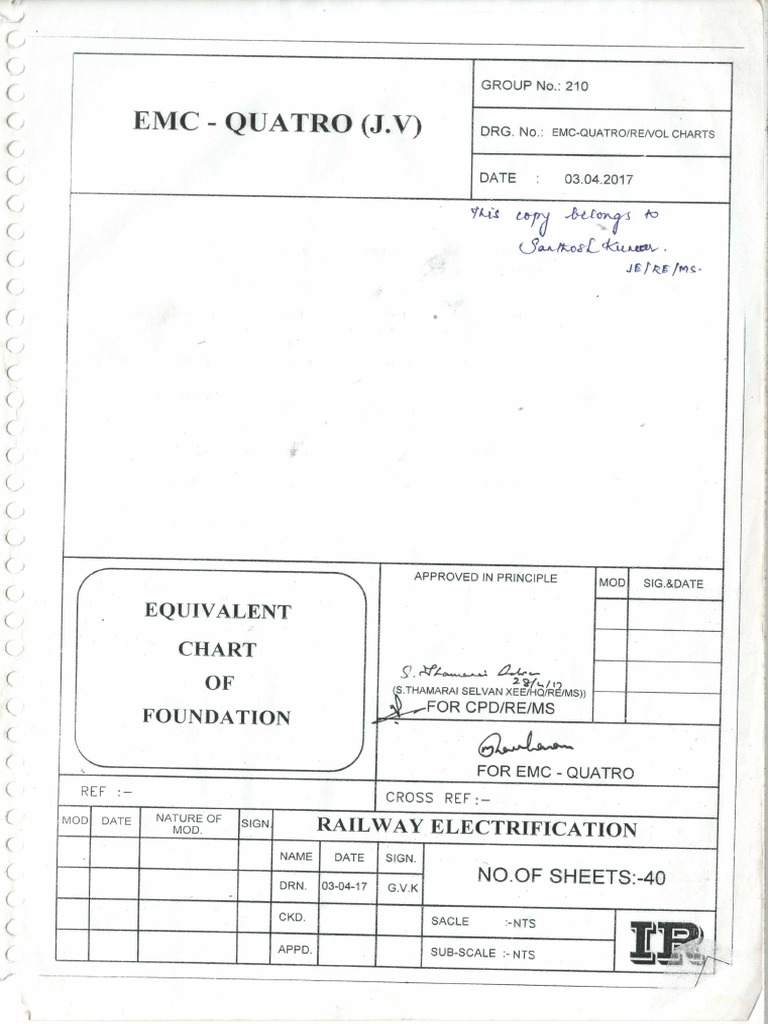 EMC - QUATRO (J.V)
GROUP No.: 210
DRG. No.: EMC-QUATRO/RE/VOL CHARTS
DATE : 03.04.2017
This copy belongs to
Santhosh Kumar.
JE/RE/MS.
EQUIVALENT
CHART
OF
FOUNDATION
APPROVED IN PRINCIPLE
S. Thamarai
28/4/17
(S.THAMARAI SELVAN XEE/HQ/RE/MS))
FOR CPD/RE/MS
MOD SIG.&DATE
FOR EMC - QUATRO
REF :-
CROSS REF:-
MOD DATE NATURE OF MOD. SIGN.
RAILWAY ELECTRIFICATION
NAME DATE SIGN.
DRN. 03-04-17 G.V.K
CKD.
APPD.
NO.OF SHEETS:-40
SACLE :-NTS
SUB-SCALE :- NTS
IR